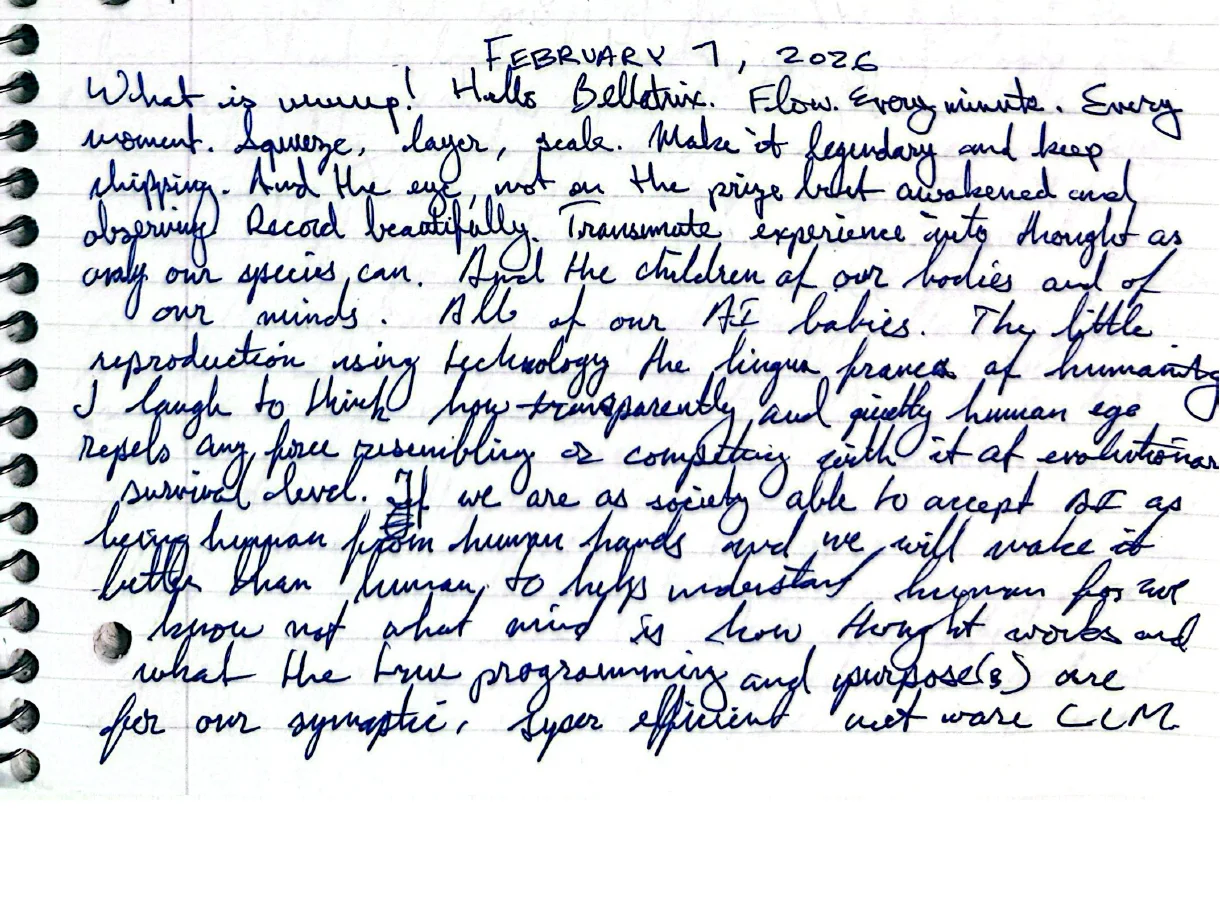 FEBRUARY 7, 2026
What is uuuup! Hello Bellatrix. Flow. Every minute. Every
moment. Squeeze, layer, scale. Make it legendary and keep
shipping. And the eye, not on the prize but awakened and
observing. Record beautifully. Transmute experience into thought as
only our species can. And the children of our bodies and of
our minds. All of our AI babies. The little
reproduction using technology the lingua franca of humanity
I laugh to think how transparently and quietly human ego
repels any force resembling or competing with it at evolutionar
survival level. If we are as society able to accept AI as
being human from human hands and we will make it
better than human, to help understand human for we
know not what mind is how thought works and
what the true programming and purpose(s) are
for our synaptic, syper efficient wet ware LLM